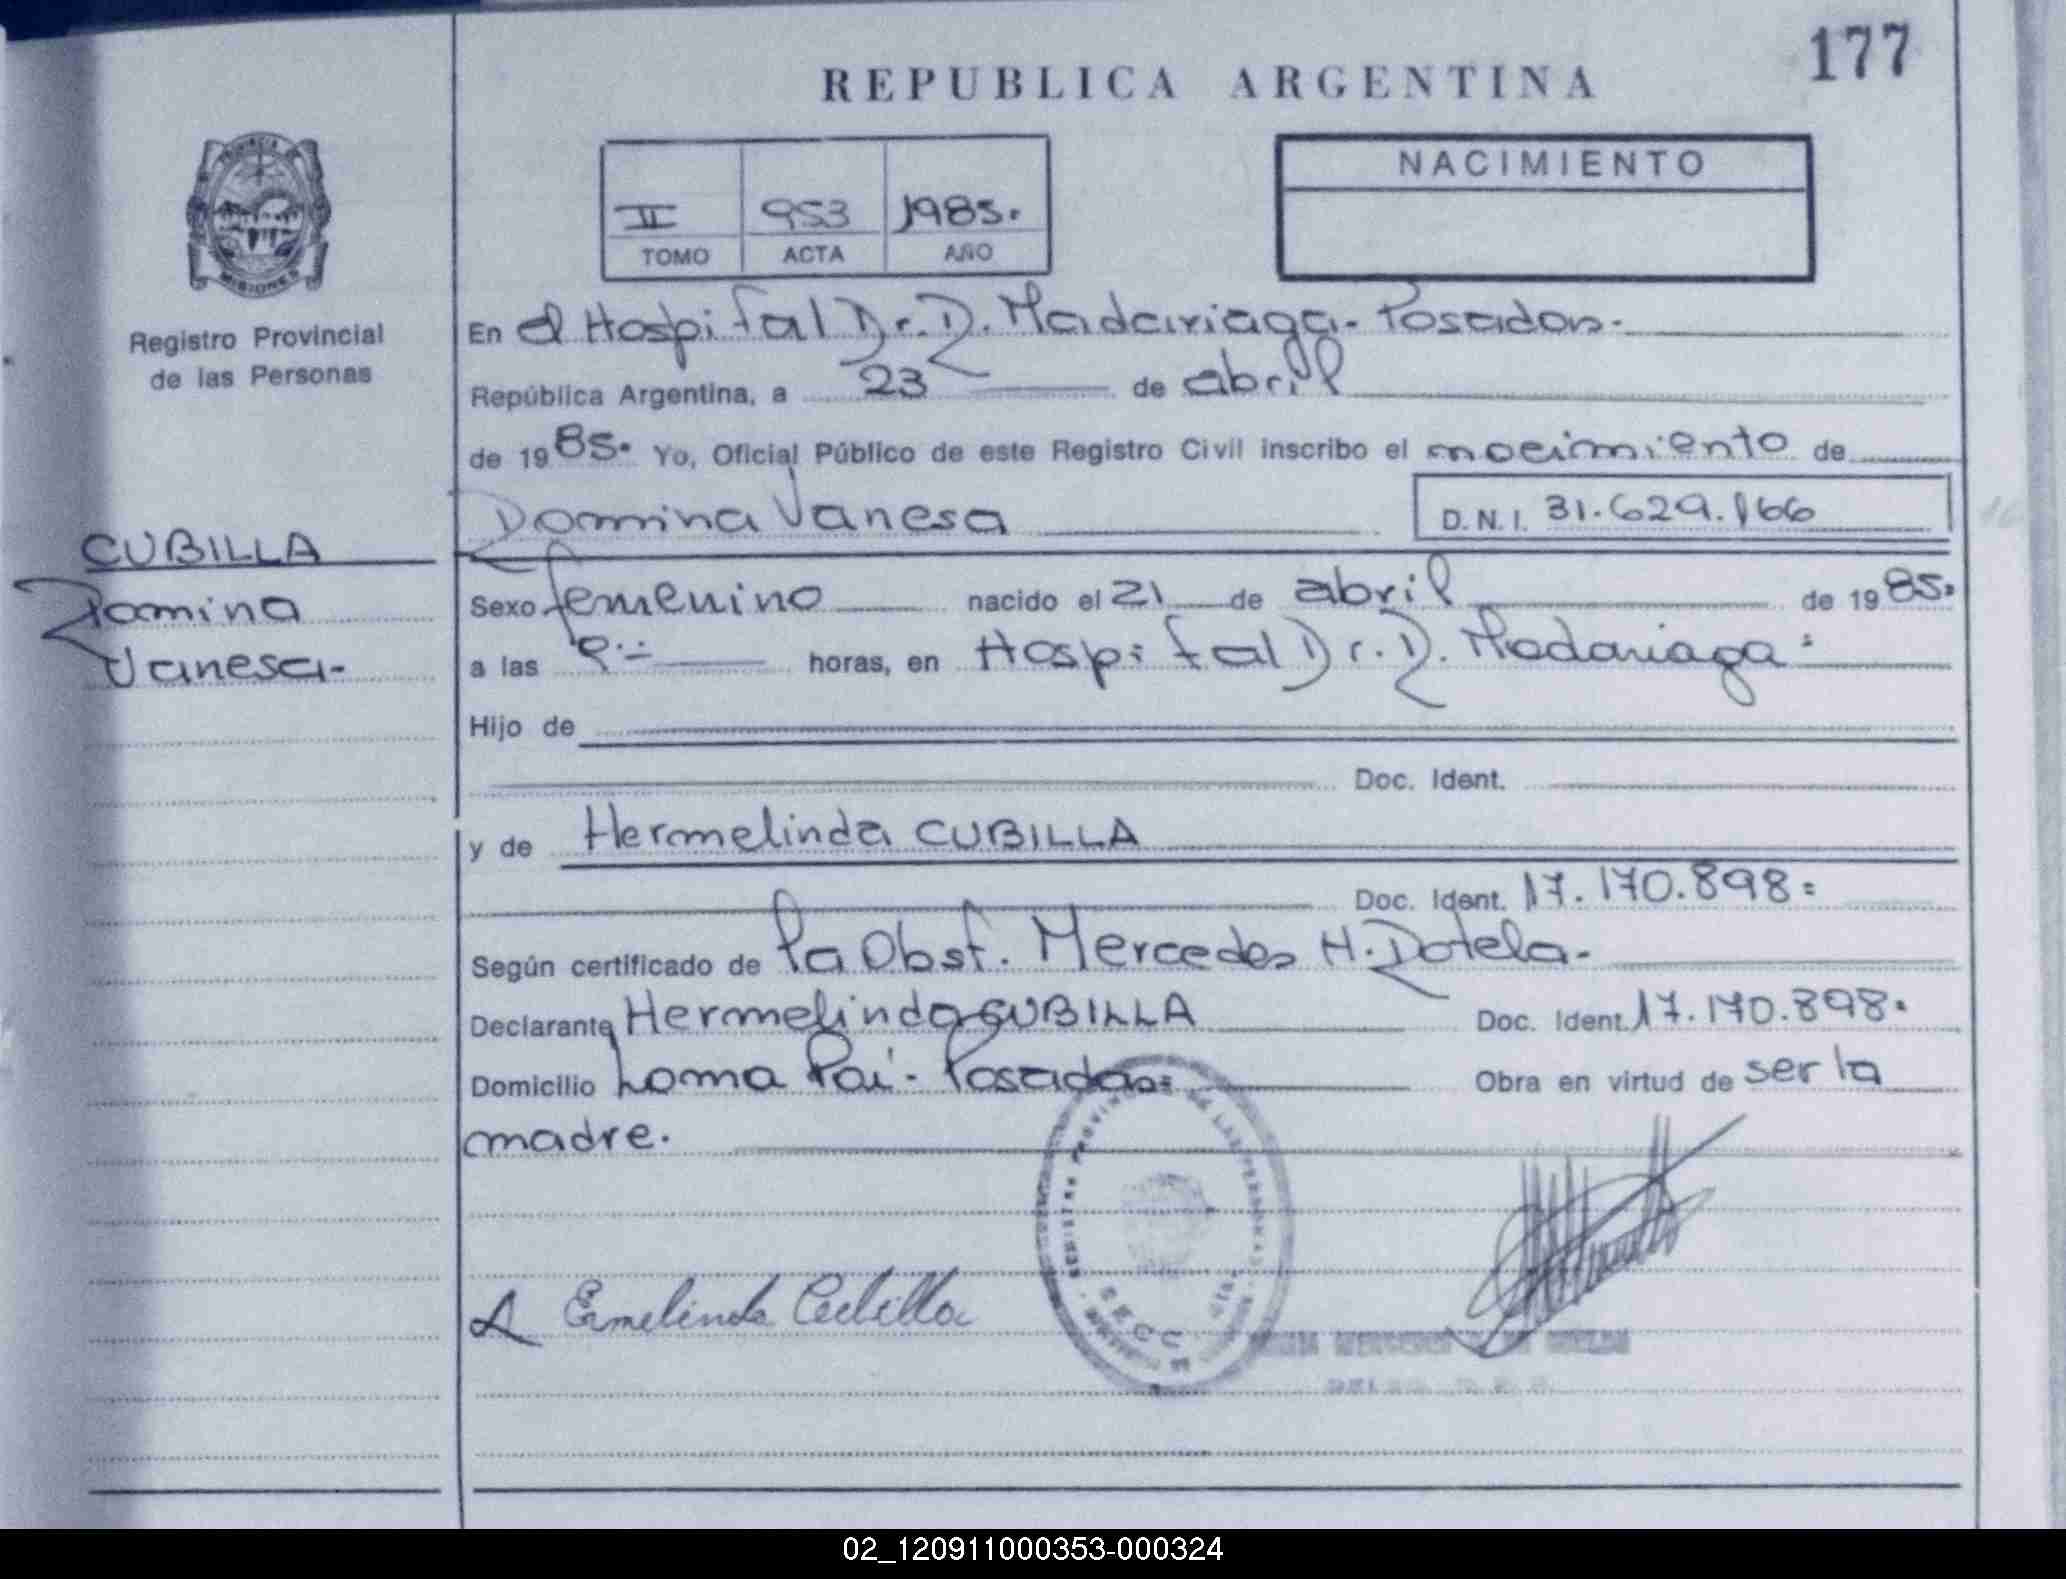 177
REPUBLICA ARGENTINA
PROVINCIA DE
MISIONES
Registro Provincial
de las Personas
II 953 1985.
TOMO ACTA AÑO
NACIMIENTO
En el Hospital Dr. R. Madariaga - Posadas.
República Argentina, a 23 de abril
de 1985. Yo, Oficial Público de este Registro Civil inscribo el nacimiento de
Romina Vanesa D.N.I. 31.629.166
CUBILLA
Romina
Vanesa-
Sexo femenino nacido el 21 de abril de 1985.
a las horas, en Hospital Dr. R. Madariaga
Hijo de
Doc. Ident.
y de Hermelinda CUBILLA
Doc. Ident. 17.170.898
Según certificado de la Obst. Mercedes H. Rotela.
Declarante Hermelinda CUBILLA Doc. Ident. 17.170.898.
Domicilio Loma Paí - Posadas Obra en virtud de ser la
madre.
REGISTRO PROVINCIAL DE LAS PERSONAS
SECC
Ermelinda Cubilla
02_120911000353-000324